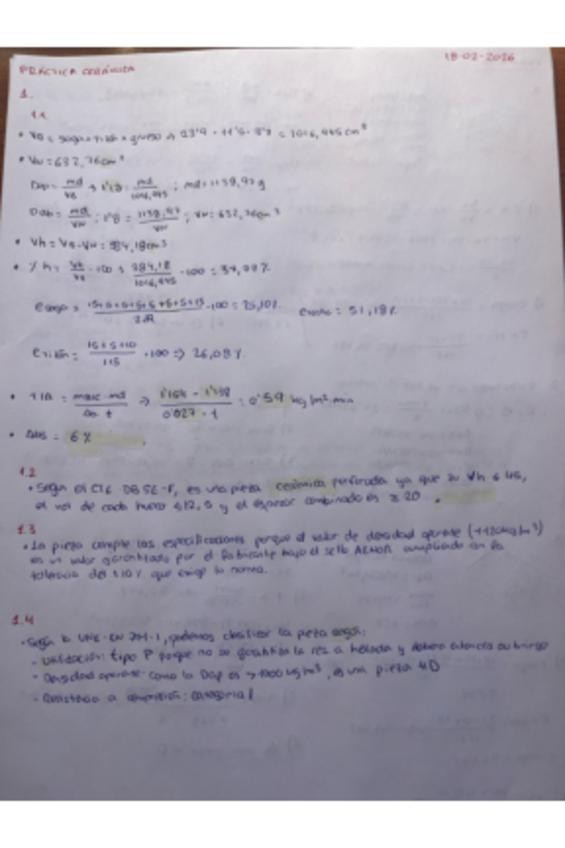 18-02-2026
PRÁCTICA CERÁMICA
1.
1.1
• VB = soga × tizón × grueso → 23'9 · 11'5 · = 1016,445 cm³
• Vn = 632,76 cm³
Dap = md / VB → 1'12 = md / 1016,445 ; md = 1138,97 g
Dab = md / Vn ; 1'8 = 1138,97 / Vn ; Vn = 632,76 cm³
• Vh = VB - Vn = 384,18 cm³
• % h = Vh / VB · 100 = 384,18 / 1016,445 · 100 = 37,79%
e soga = · 100 = 25,10% = 51,18%
e tizón = 15+5+10 / 115 · 100 => 26,08%
• TIA = - md / · t => 1'154 - 1'138 / 0'027 · 1 = 0'59 kg/m² · min
• Abs = 6%
1.2
• Según el CTE DB SE-F, es una pieza cerámica perforada ya que su Vh ≤ 45,
el vol de cada hueco ≤ 12,5 y el espesor combinado es ≥ 20.
1.3
• La pieza cumple las especificaciones porque el valor de densidad aparente (1120 kg/m³)
es un valor garantizado por el fabricante bajo el sello AENOR cumpliendo con la
tolerancia del ±10% que exige la norma.
1.4
• Según la UNE-EN 771-1, podemos clasificar la pieza según:
- Utilización: tipo P porque no se garantiza la res. a helada y
- Densidad aparente: como la Dap es > 1000 kg/m³, es una pieza HD
- Resistencia a compresión: categoría I